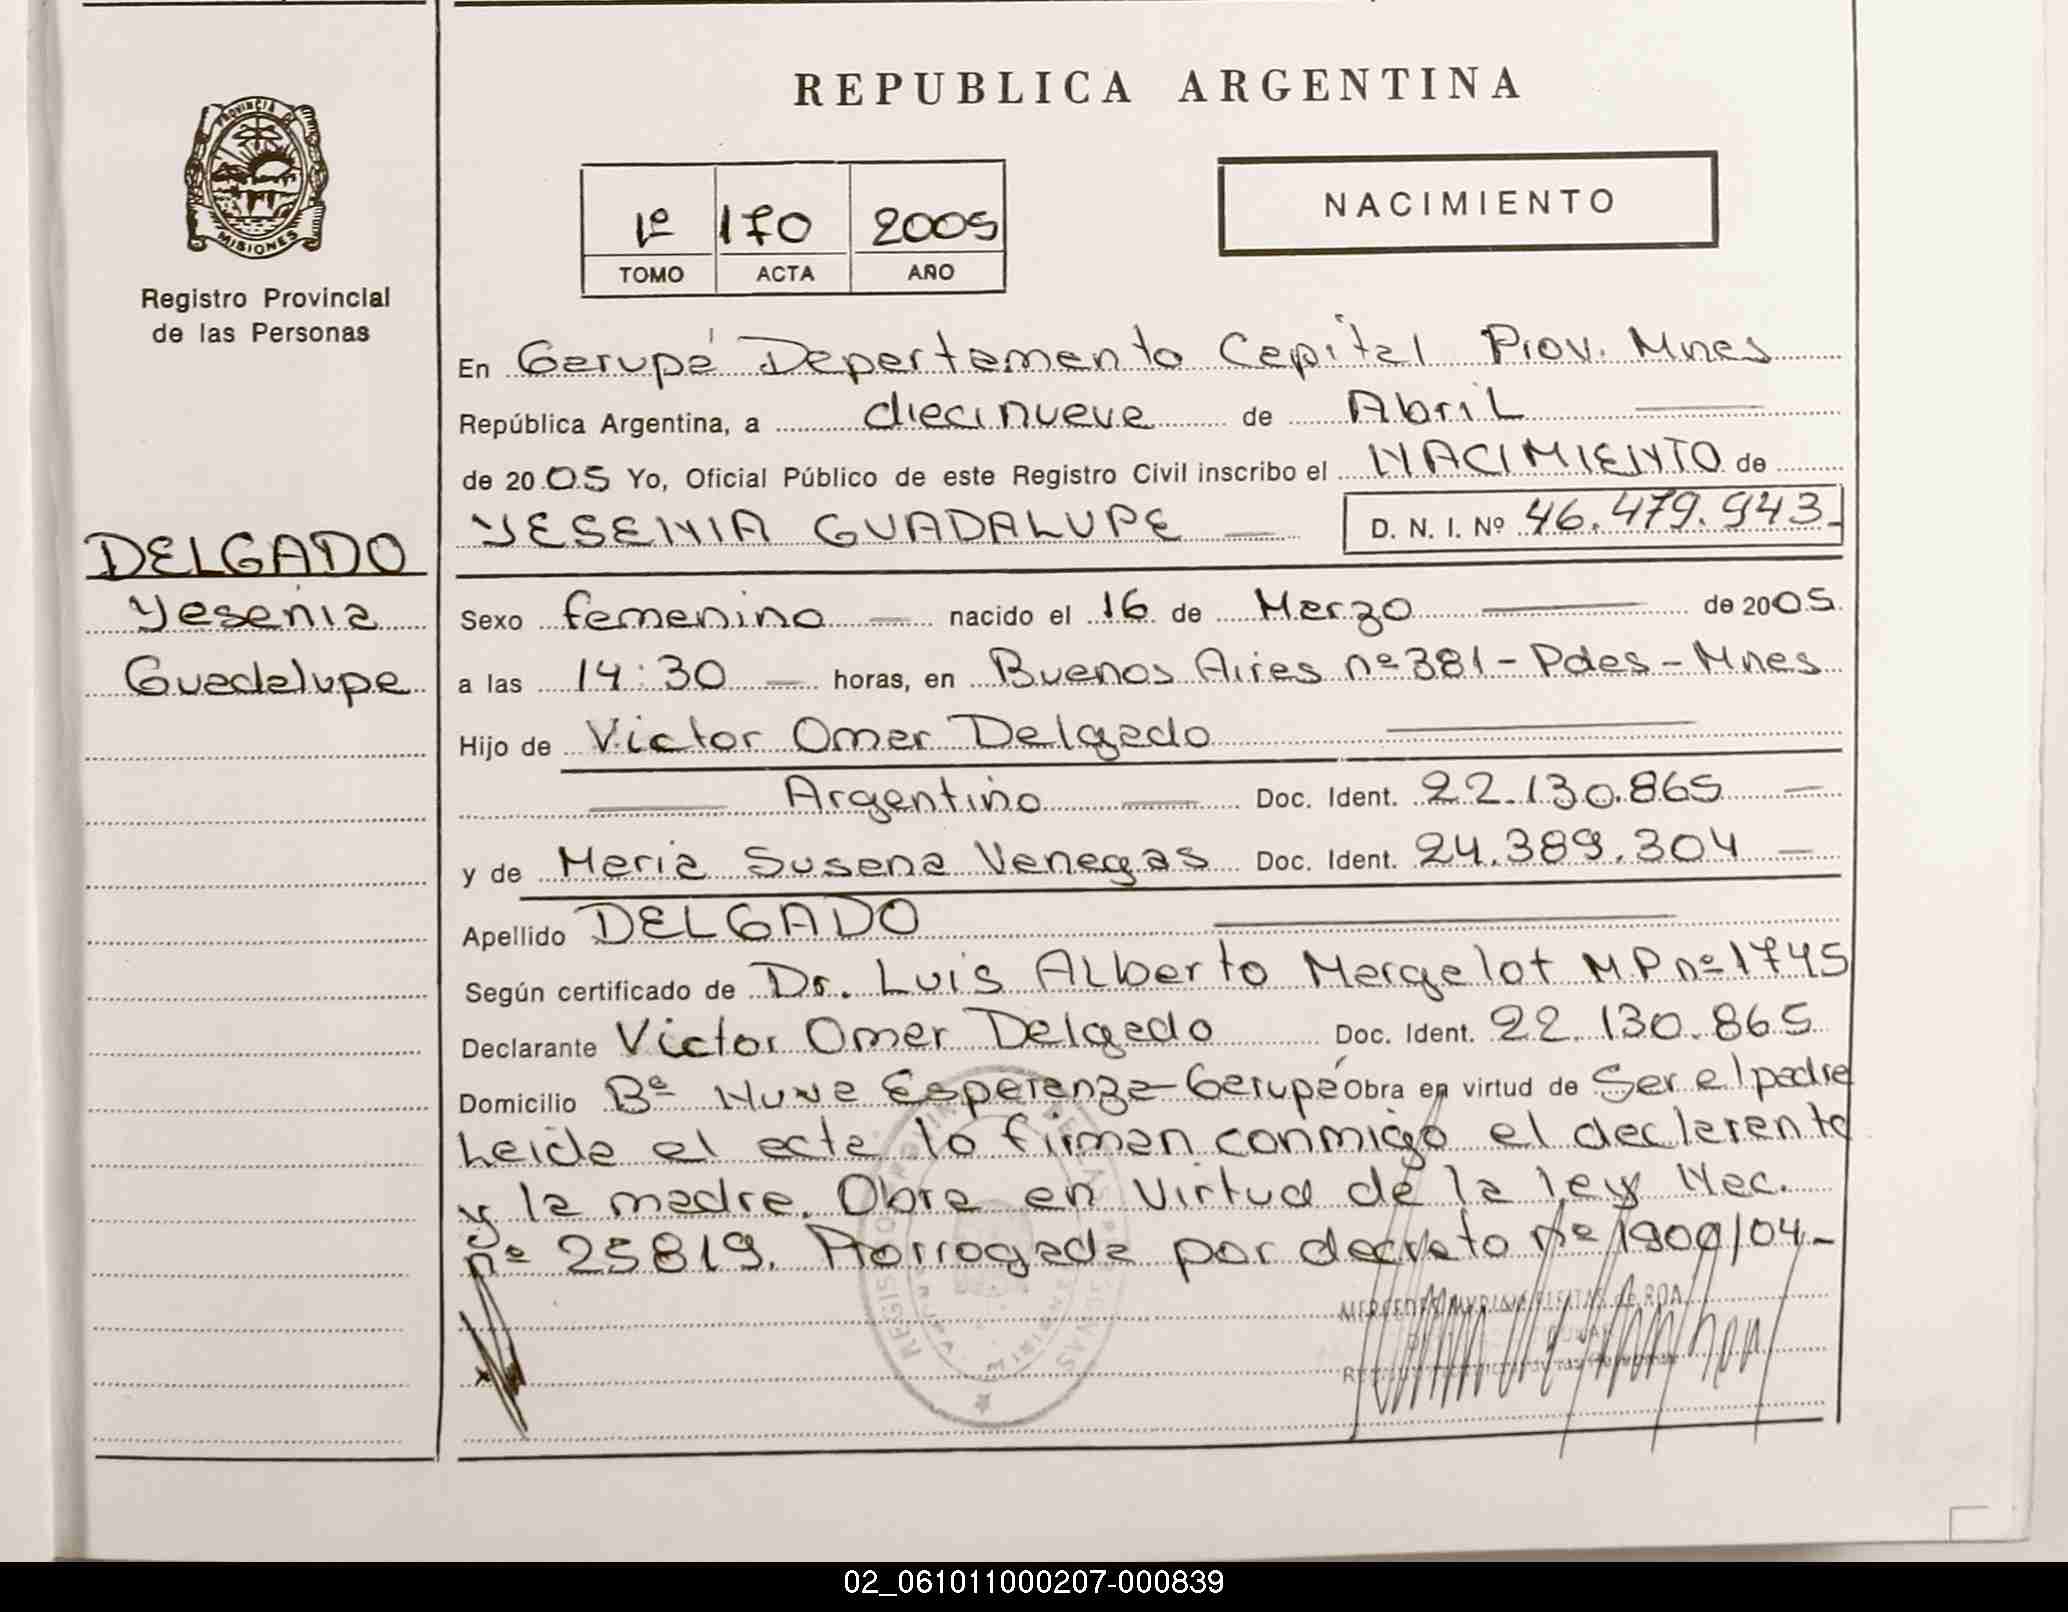 REPUBLICA ARGENTINA
PROVINCIA DE
MISIONES
Registro Provincial
de las Personas
1º 170 2005
TOMO ACTA AÑO
NACIMIENTO
En Garupá Departamento Capital Prov. Mnes
República Argentina, a diecinueve de Abril
de 2005 Yo, Oficial Público de este Registro Civil inscribo el NACIMIENTO de
YESENIA GUADALUPE D. N. I. Nº 46.479.943.
DELGADO
Yesenia
Guadalupe
Sexo femenino nacido el 16 de Marzo de 2005.
a las 14:30 horas, en Buenos Aires nº 381 - Pdas - Mnes
Hijo de Victor Omar Delgado
Argentino Doc. Ident. 22.130.865
y de Maria Susana Venegas Doc. Ident. 24.389.304
Apellido DELGADO
Según certificado de Dr. Luis Alberto Margalot M.P. nº 1745
Declarante Victor Omar Delgado Doc. Ident. 22.130.865
Domicilio Bº Nuva Esperanza - Garupá Obra en virtud de Ser el padre
Leida el acta lo firman conmigo el declarante
y la madre. Obra en Virtud de la ley Nac.
nº 25819. Prorrogada por decreto nº 1900/04.-
02_061011000207-000839